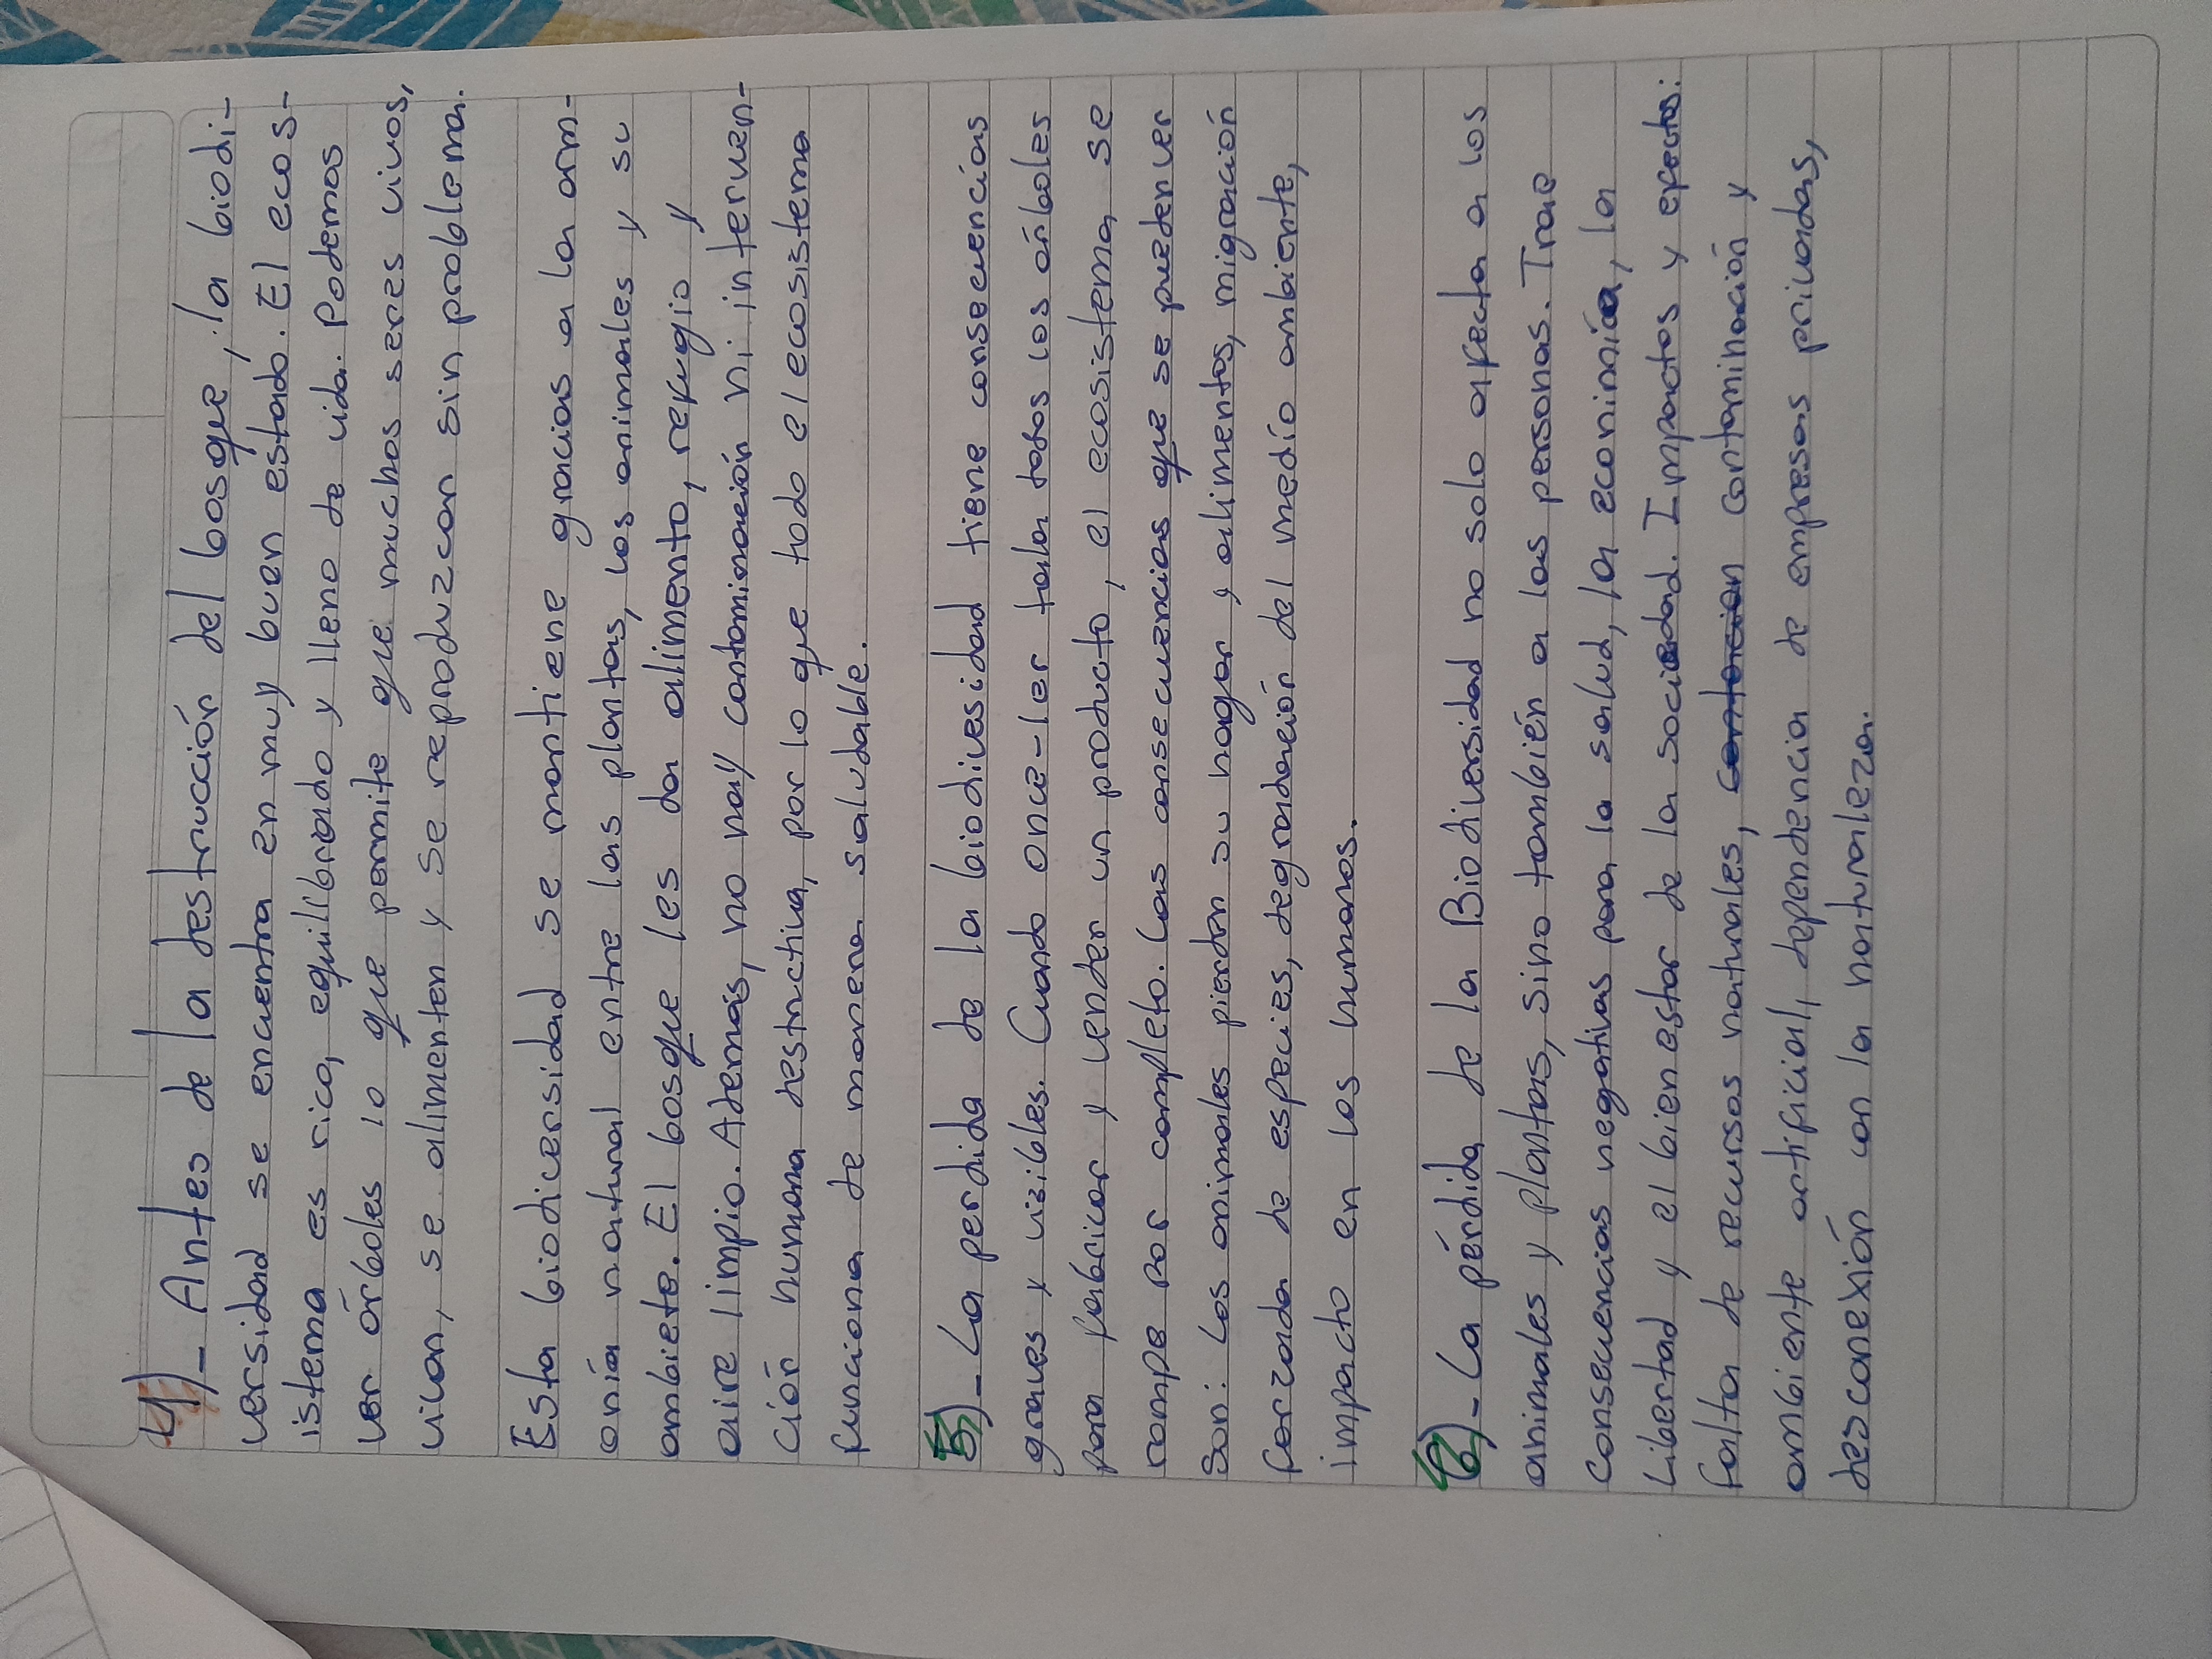 4)_ Antes de la destrucción del bosque, la biodi-
versidad se encuentra en muy buen estado. El ecos-
istema es rico, equilibrado y lleno de vida. Podemos
ver árboles lo que permite que muchos seres vivos,
vivan, se alimenten y se reproduzcan sin problema.
Esta biodicersidad se mantiene gracias a la arm-
onía natural entre las plantas, los animales y su
ambieto. El bosque les da alimento, refugio y
aire limpio. Además, no hay contaminación ni interven-
ción humana destructiva, por lo que todo el ecosistema
funciona de manera saludable.
5)_ La perdida de la biodivesidad tiene consecuencias
graves y vizibles. Cuando once-ler tala todos los árboles
para fabricar y vender un producto, el ecosistema se
rompe por completo. Las consecuencias que se pueden ver
son: Los animales pierden su hogar y alimentos, migración
forzada de especies, degradación del medio ambiente,
impacto en los humanos.
6)_ La pérdida de la Biodiversidad no solo afecta a los
animales y plantas, sino también a las personas. Trae
consecuencias negativas para la salud, la econimía, la
Libertad y el bien estar de la sociedad. Impactos y efectos:
falta de recursos naturales, contaminación y
ambiente artificial, dependencia de empresas privadas,
desconexión con la naturaleza.